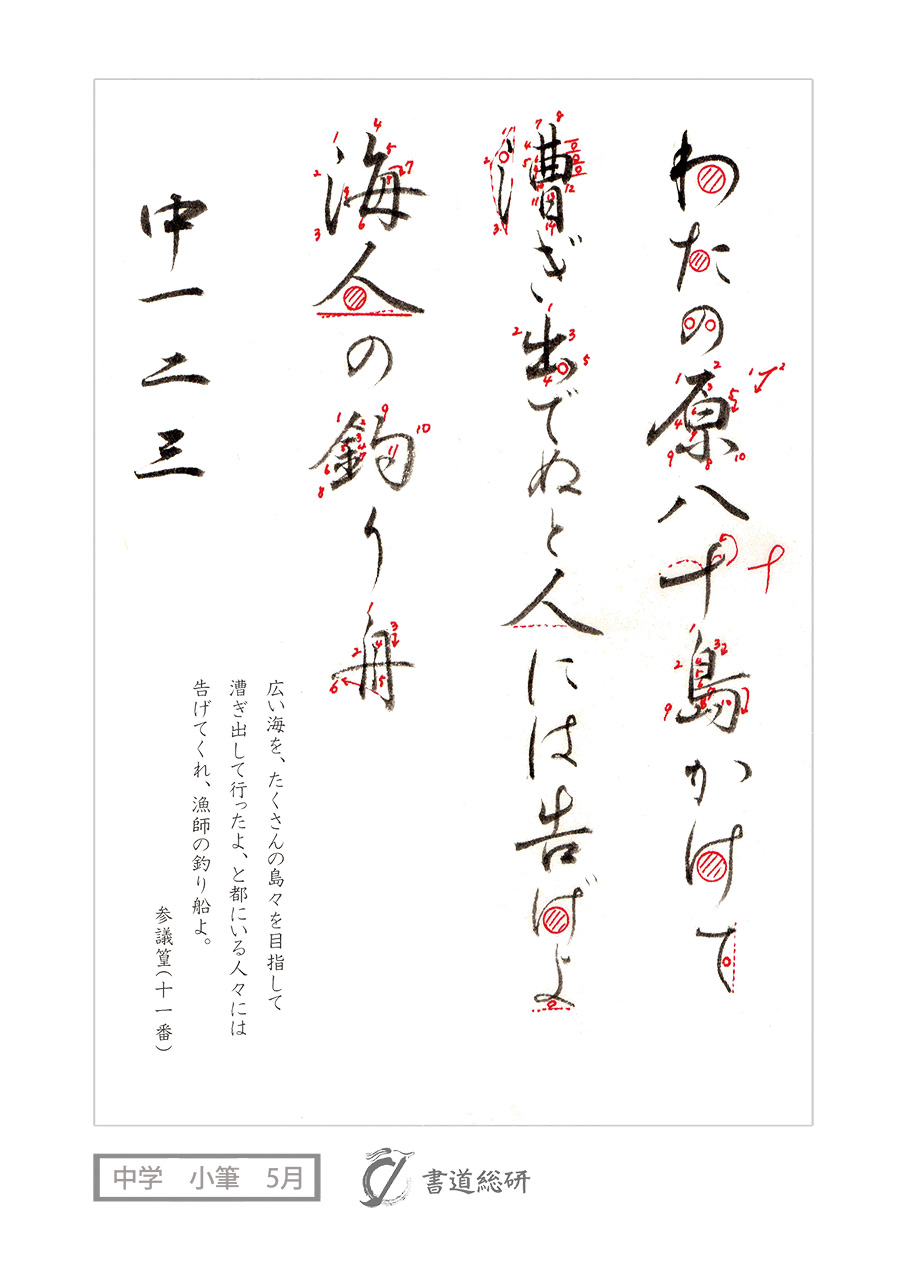 わたの原八十島かけて
漕ぎ出でぬと人には告げよ
海人の釣り舟
中一二三
広い海を、たくさんの島々を目指して
漕ぎ出して行ったよ、と都にいる人々には
告げてくれ、漁師の釣り船よ。
参議篁(十一番)
中学 小筆 5月
書道総研